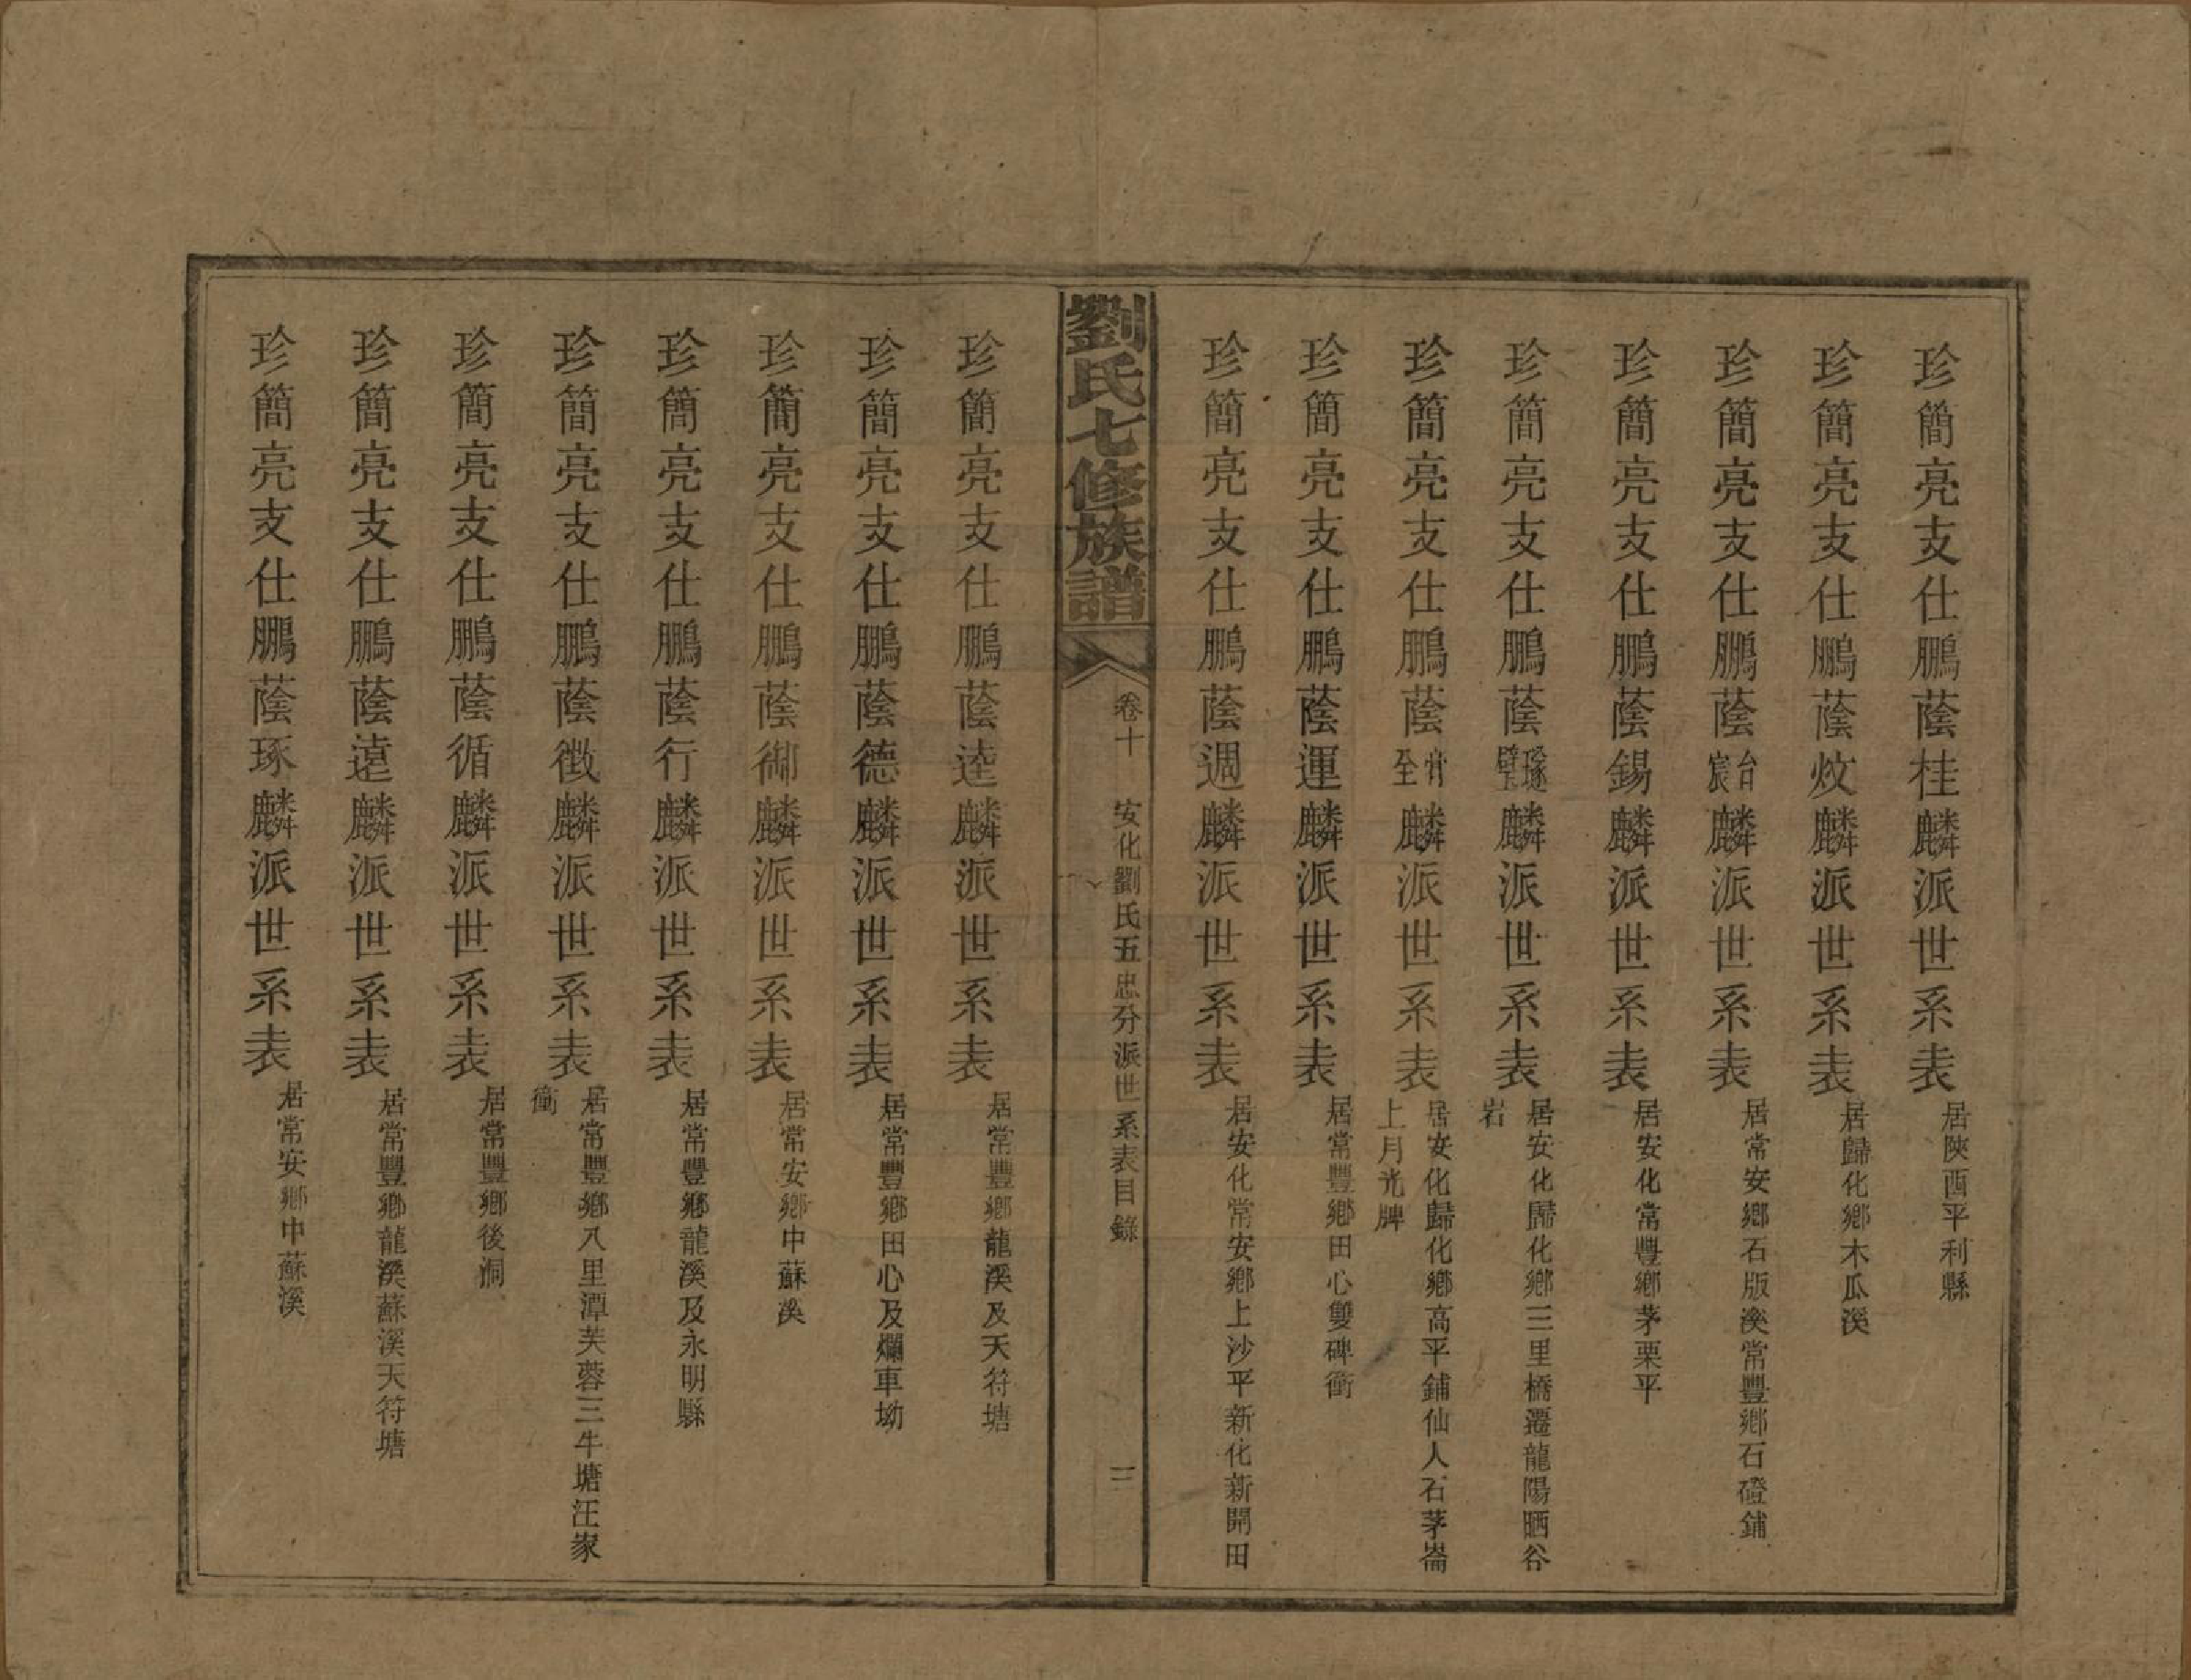 珍簡亮支仕鵬蔭桂麟派世系表 居陝西平利縣
珍簡亮支仕鵬蔭炆麟派世系表 居歸化鄉木瓜溪
珍簡亮支仕鵬蔭台宸麟派世系表 居常安鄉石版溪常豐鄉石磴鋪
珍簡亮支仕鵬蔭錫麟派世系表 居安化常豐鄉茅栗平
珍簡亮支仕鵬蔭璲璧麟派世系表 居安化歸化鄉三里橋遷龍陽晒谷
岩
珍簡亮支仕鵬蔭膏至麟派世系表 居安化歸化鄉高平鋪仙人石茅崙
上月光牌
珍簡亮支仕鵬蔭運麟派世系表 居常豐鄉田心雙碑衝
珍簡亮支仕鵬蔭週麟派世系表 居安化常安鄉上沙平新化新開田
劉氏七修族譜 卷十 安化劉氏五忠分派世系表目錄 二
珍簡亮支仕鵬蔭逵麟派世系表 居常豐鄉龍溪及天符塘
珍簡亮支仕鵬蔭德麟派世系表 居常豐鄉田心及爛車坳
珍簡亮支仕鵬蔭御麟派世系表 居常安鄉中蘇溪
珍簡亮支仕鵬蔭行麟派世系表 居常豐鄉龍溪及永明縣
珍簡亮支仕鵬蔭徴麟派世系表 居常豐鄉八里潭芙蓉三牛塘汪家
衝
珍簡亮支仕鵬蔭循麟派世系表 居常豐鄉後洞
珍簡亮支仕鵬蔭遠麟派世系表 居常豐鄉龍溪蘇溪天符塘
珍簡亮支仕鵬蔭琢麟派世系表 居常安鄉中蘇溪